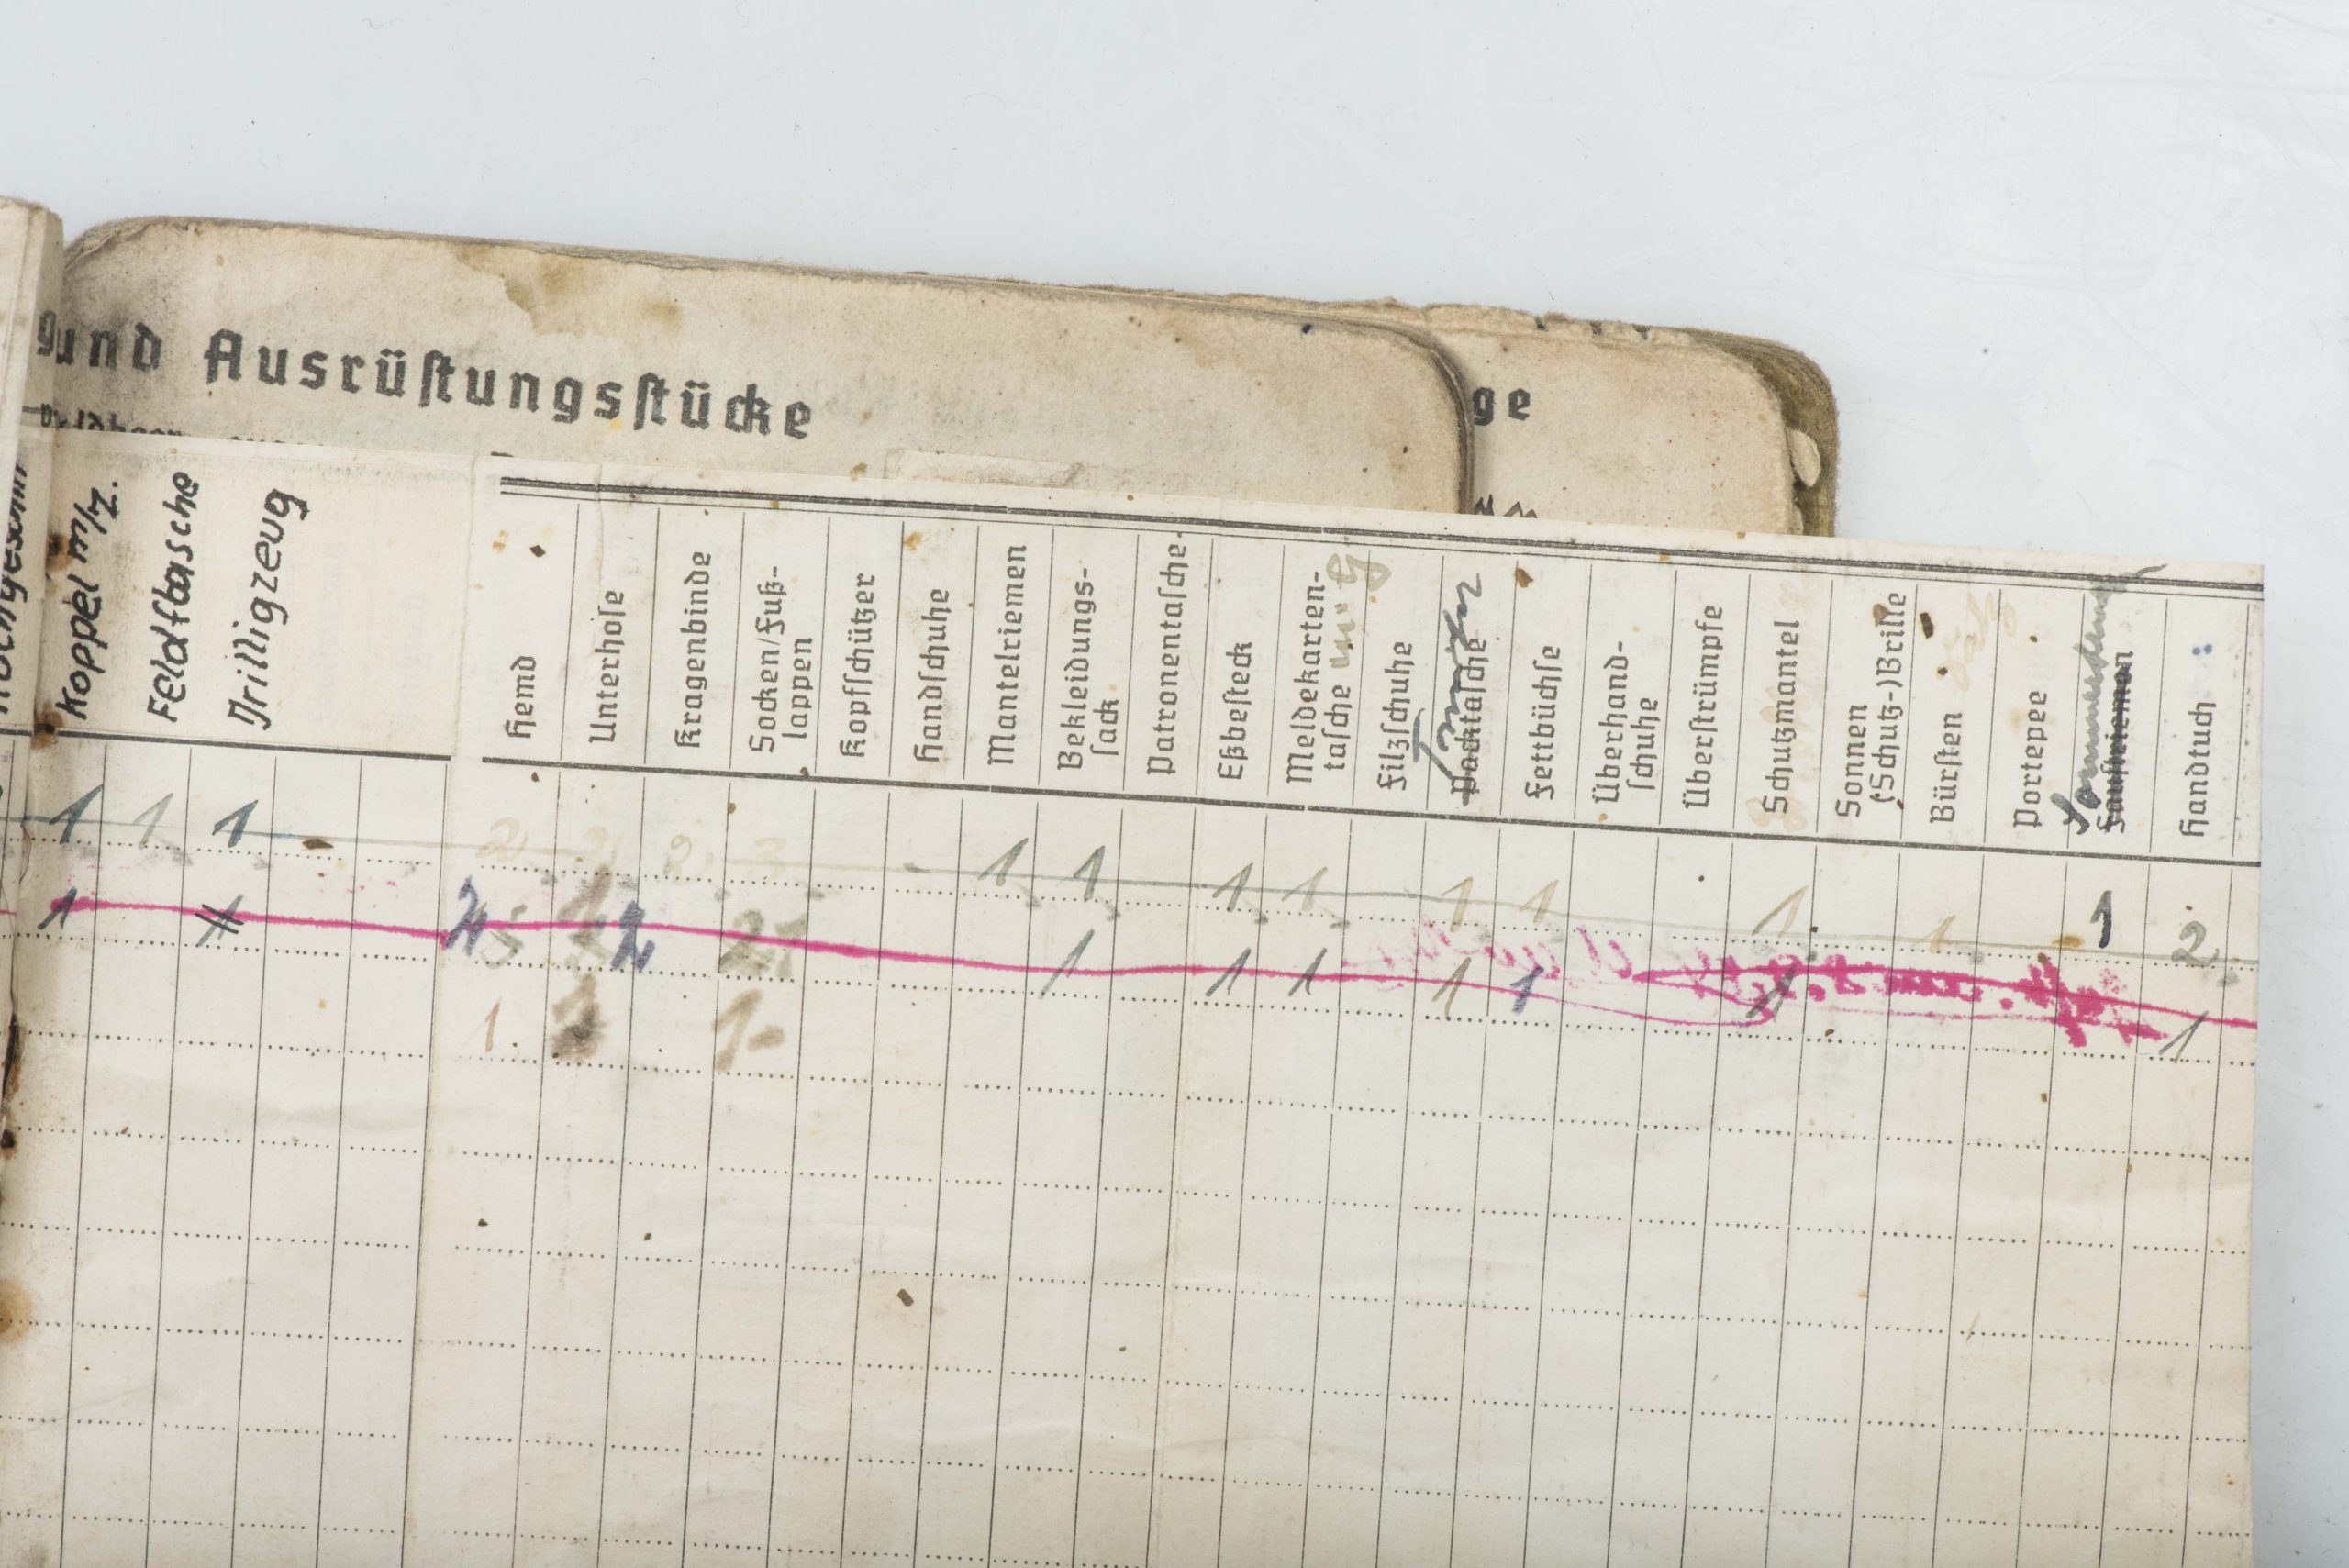 und Ausrüstungsstücke
ge
Koppel m/Z.
Feldflasche
Drilligzeug
Hemd
Unterhose
Kragenbinde
Socken/Fuß-
lappen
Kopfschützer
Handschuhe
Mantelriemen
Bekleidungs-
sack
Patronentasche
Eßbesteck
Meldekarten-
tasche
Filzschuhe
Packtasche
Fettbüchse
Überhand-
schuhe
Überstrümpfe
Schutzmantel
Sonnen
(Schutz-)Brille
Bürsten
Portepee
Faustriemen
Handtuch
1 1 1 2 2 2 3 1 1 1 1 1 1 1 1 1 2
1 1 2 2 1 1 1 1 1 1 1
1 1